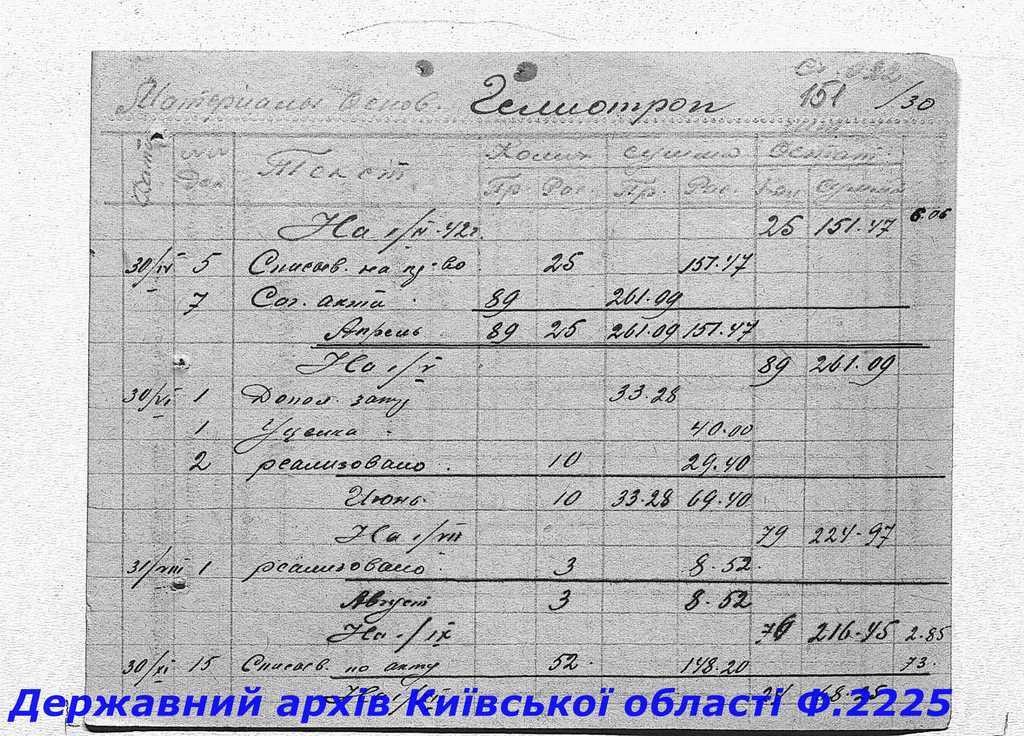 Материалы Основ. Гелиотроп 151 /30
Дата Текст Колич Сумма Остат.
Пр. Рас. Пр. Рас. Кол Сумма
На 1/IV-42г. 25 151.47 6.06
30/IV 5 Списыв. на пр-во 25 151.47
7 Сог. акта 89 261.09
Апрель 89 25 261.09 151.47
На 1/V 89 261.09
30/VI 1 Допол. зату 33.28
1 Уценка 40.00
2 реализовано 10 29.40
Июнь 10 33.28 69.40
На 1/VII 79 224-97
31/VIII 1 реализовано 3 8.52
Август 3 8.52
На 1/IX 76 216-45 2.85
30/XI 15 Списыв. по акту 52 148.20 73
Державний архів Київської області Ф.2225